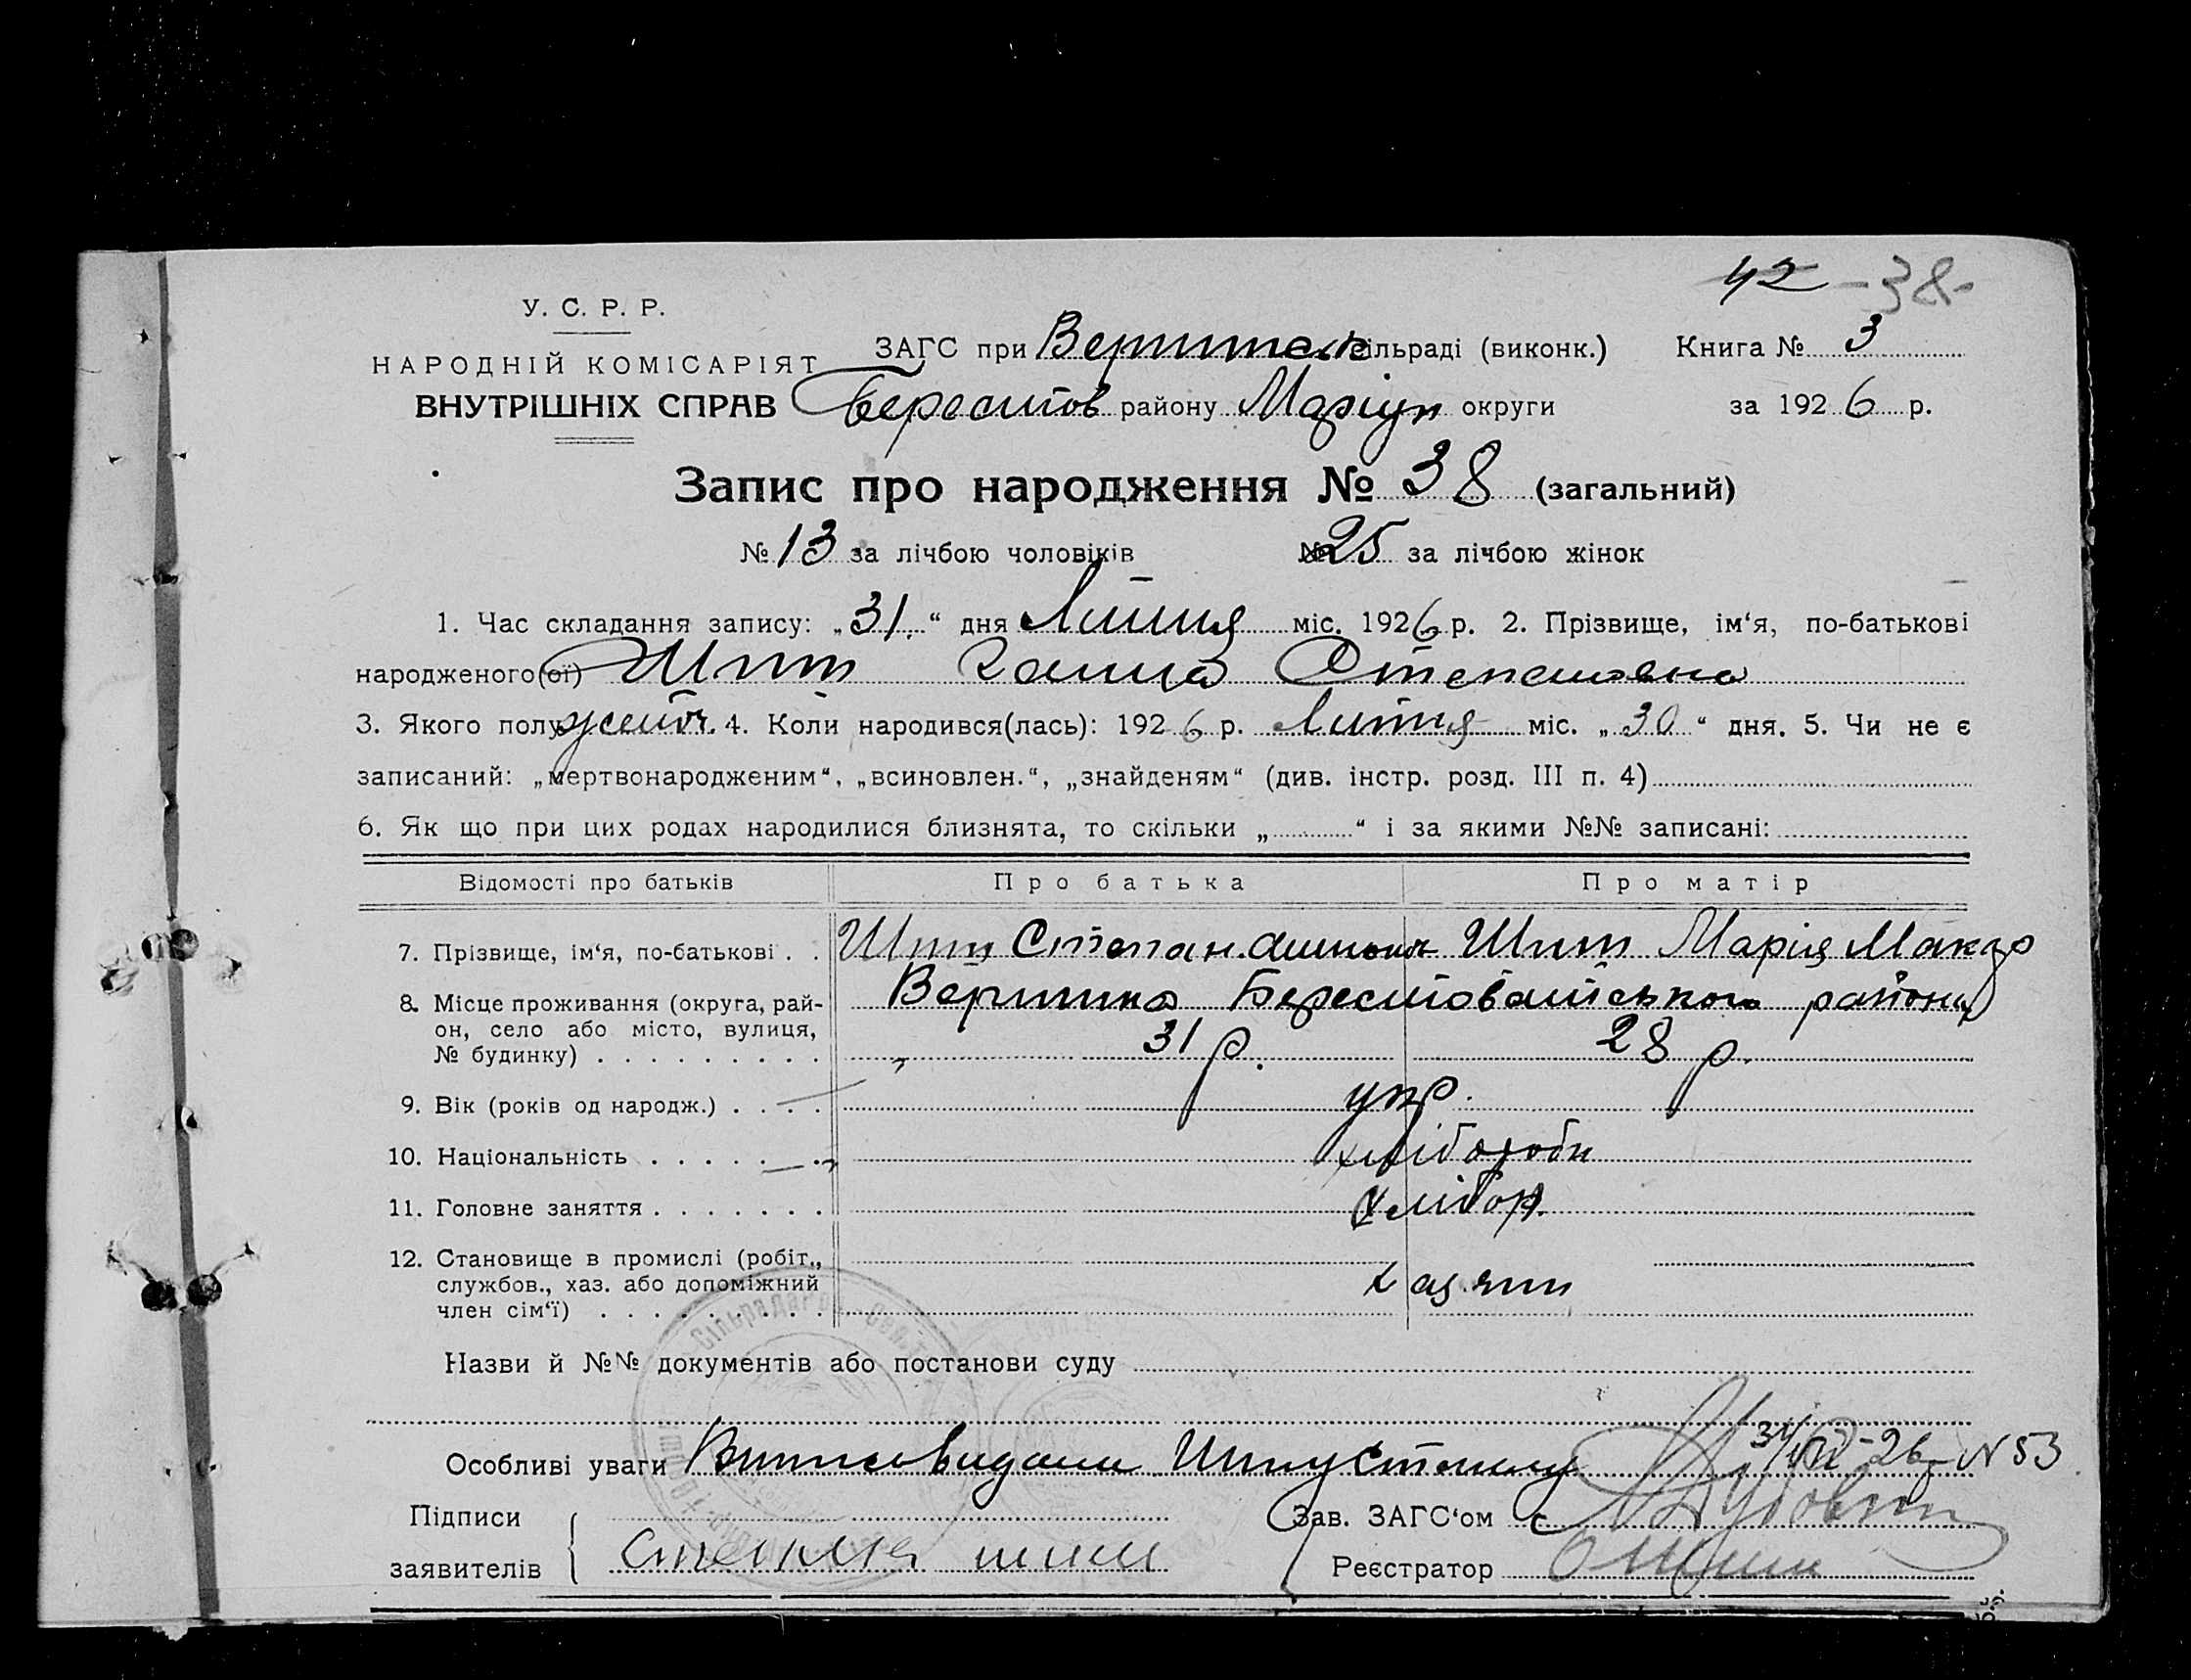 42 - 38 -
У. С. Р. Р.
НАРОДНІЙ КОМІСАРІЯТ
ВНУТРІШНІХ СПРАВ
ЗАГС при сільраді (виконк.) Книга № 3
Берестов району Маріуп округи за 1926 р.
Запис про народження № 38 (загальний)
№ 13 за лічбою чоловіків № 25 за лічбою жінок
1. Час складання запису: „31.“ дня Липня міс. 1926 р. 2. Прізвище, ім‘я, по-батькові
народженого(ої) Шпт Ганна Степановна
3. Якого полу жіноч. 4. Коли народився(лась): 1926 р. Липня міс. „30“ дня. 5. Чи не є
записаний: „мертвонародженим“, „всиновлен.“, „знайденям“ (див. інстр. розд. III п. 4)
6. Як що при цих родах народилися близнята, то скільки „ “ і за якими №№ записані:
Відомості про батьків Про батька Про матір
7. Прізвище, ім‘я, по-батькові . . Шпт Степан Шпт Марія Макар
8. Місце проживання (округа, рай-
он, село або місто, вулиця,
№ будинку) Вершина Берестоватського району
9. Вік (років од народж.) 31 р. 28 р.
10. Національність укр.
11. Головне заняття хлібороби
хлібор.
12. Становище в промислі (робіт.,
службов., хаз. або допоміжний
член сім‘ї)
Назви й №№ документів або постанови суду
Особливі уваги Випис видани Шпту Степану 31/VII-26 N 53
Підписи
заявителів
Зав. ЗАГС‘ом
Реєстратор